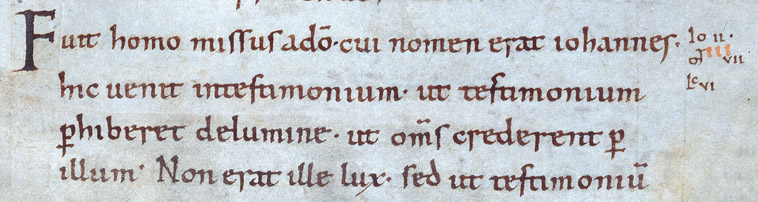 Fuit homo missus adō· cui nomen erat iohannes·
hic uenit intestimonium· ut testimonium
ꝑhiberet delumine· ut om̄s crederent ꝑ
illum· Non erat ille lux· sed ut testimoniū
Io ii·
vii
lc vi